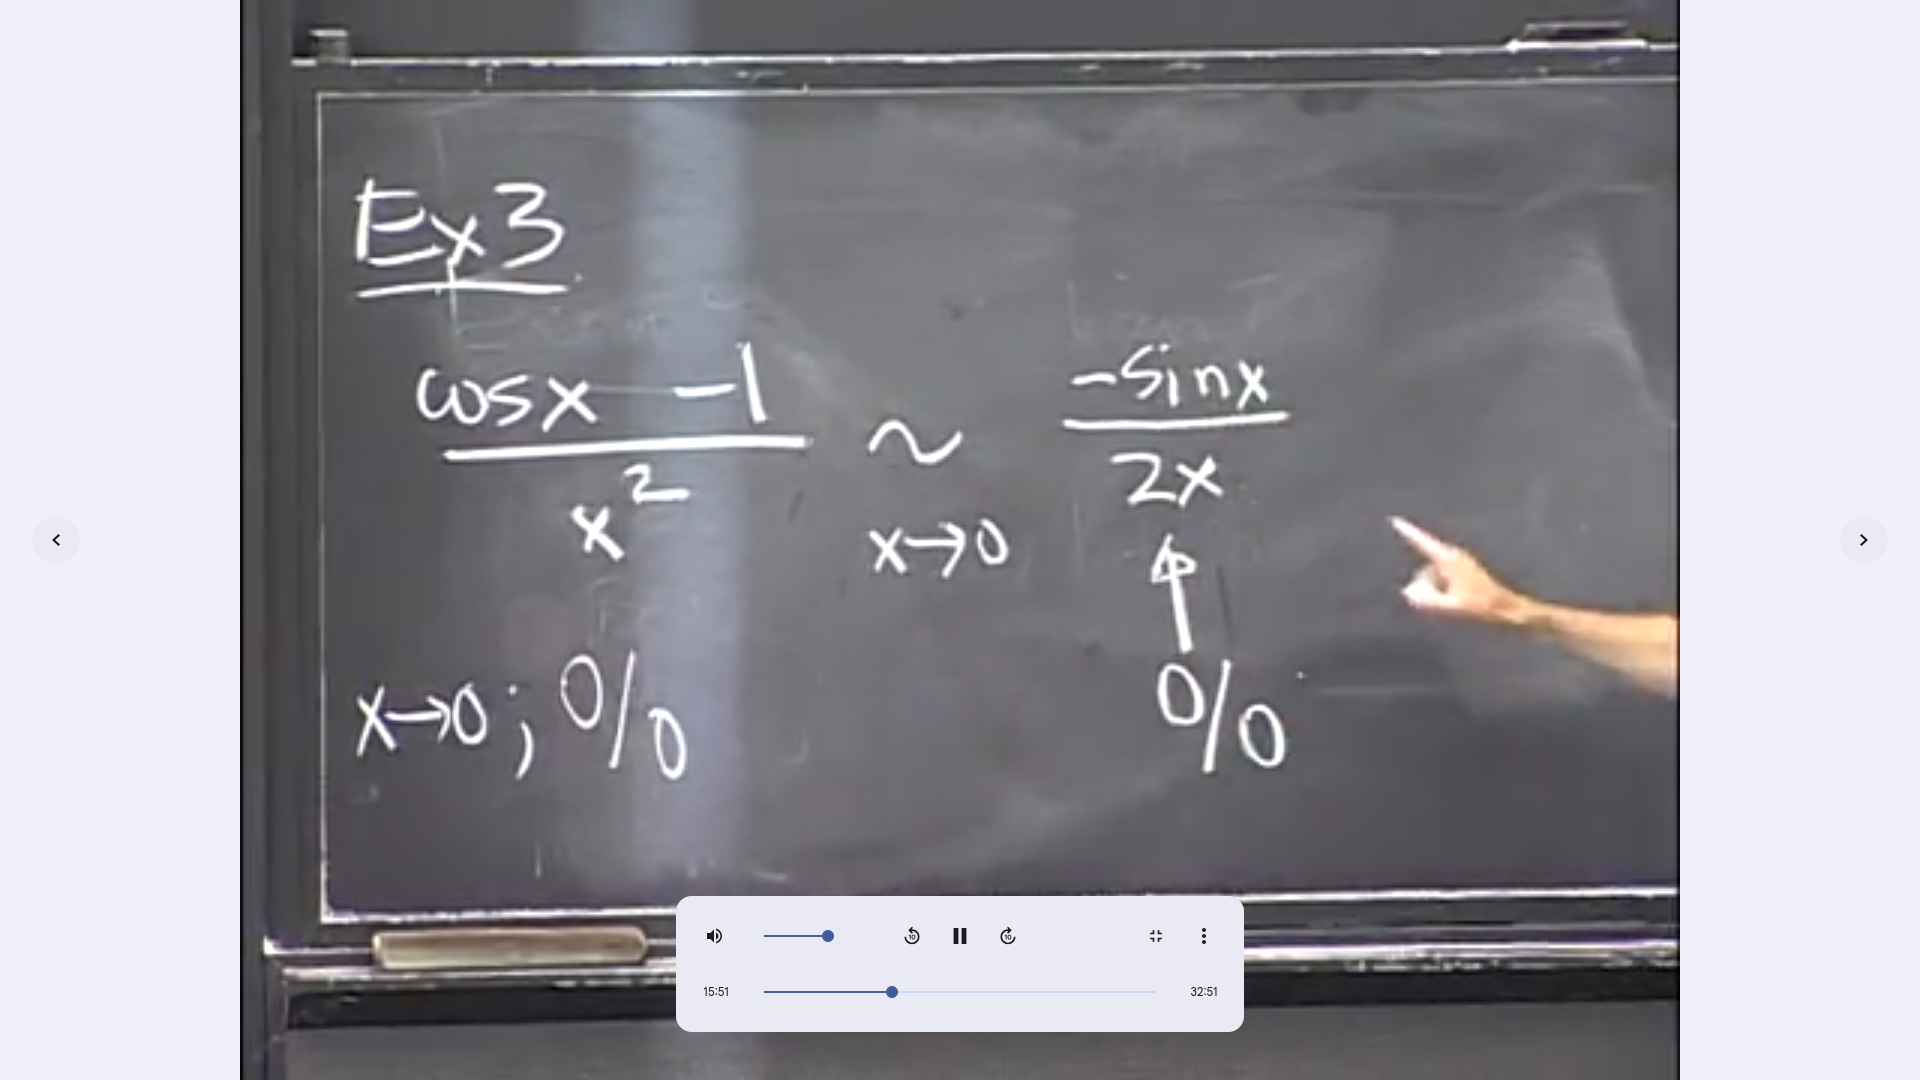 Ex 3
cosx -1
x²
~
x→0
-sinx
2x
x→0; 0/0
0/0
15:51
32:51